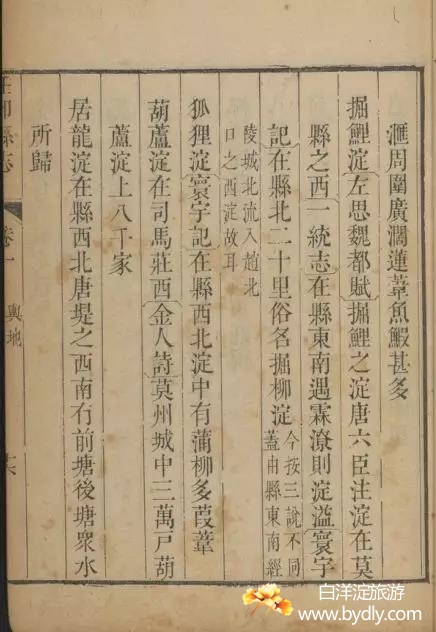 滙周圍廣濶蓮葦魚鰕甚多
掘鯉淀左思魏都賦掘鯉之淀唐六臣注淀在莫
縣之西一統志在縣東南遇霖潦則淀溢寰宇
記在縣北二十里俗名掘柳淀
今按三說不同
蓋由縣東南經
陵城北流入趙北
口之西淀故耳
狐狸淀寰宇記在縣西北淀中有蒲柳多葭葦
葫蘆淀在司馬莊西金人詩莫州城中三萬戸葫
蘆淀上八千家
居龍淀在縣西北唐堤之西南有前塘後塘衆水
所歸
縣志
卷一
輿地
白洋淀旅游
www.bydly.com